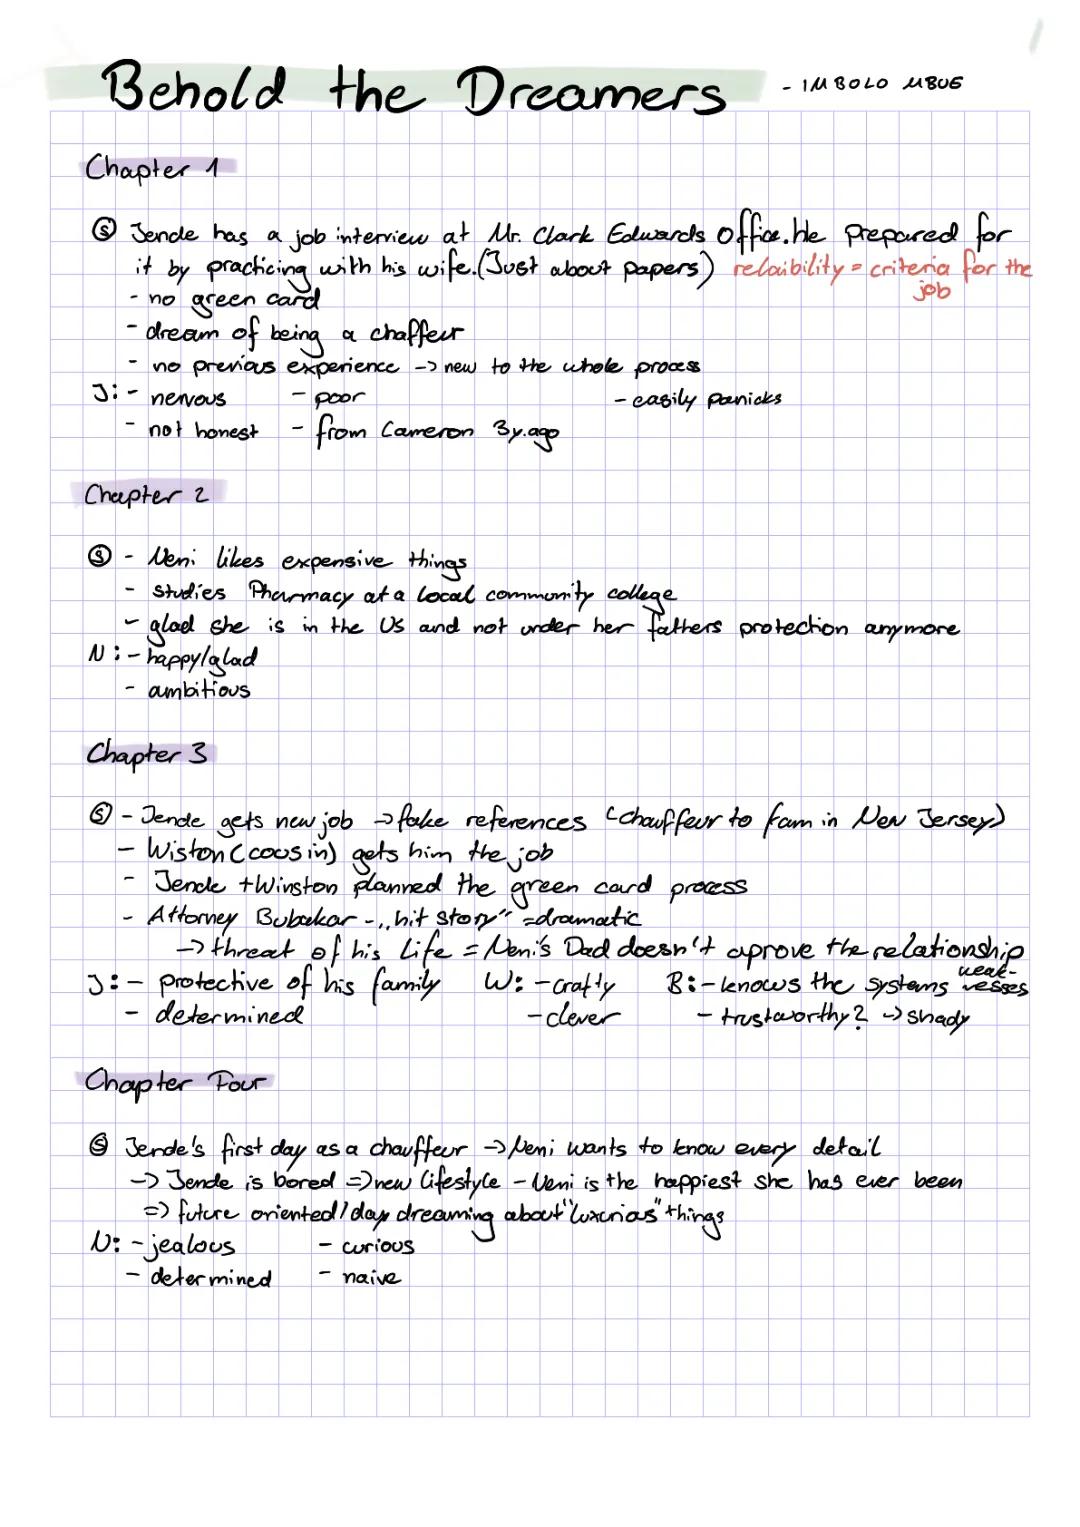 Behold the Dreamers - IMBOLO MBUE
Chapter 1
Ⓢ Jende has a job interview at Mr. Clark Edwards office. He prepared for
it by practicing with his wife. (Just about papers) relaibility = criteria for the
job
- no green card
- dream of being a chaffeur
- no previous experience -> new to the whole process
J: - nervous - poor - easily panicks
- not honest - from Cameron 3y. ago
Chapter 2
Ⓢ - Neni likes expensive things
- studies Pharmacy at a local community college
- glad she is in the US and not under her fathers protection anymore
N: - happy/glad
- ambitious
Chapter 3
Ⓢ - Jende gets new job -> fake references (chauffeur to fam in New Jersey)
- Wiston (cousin) gets him the job
- Jende + Winston planned the green card process
- Attorney Bubakar - „hit story" = dramatic
-> threat of his life = Neni's Dad doesn't aprove the relationship
J: - protective of his family W: - crafty B: - knows the systems weak-
nesses
- determined - clever - trustworthy? -> shady
Chapter Four
Ⓢ Jende's first day as a chauffeur -> Neni wants to know every detail
-> Jende is bored => new lifestyle - Neni is the happiest she has ever been
=> future oriented / day dreaming about "luxurias" things
N: - jealous - curious
- determined - naive